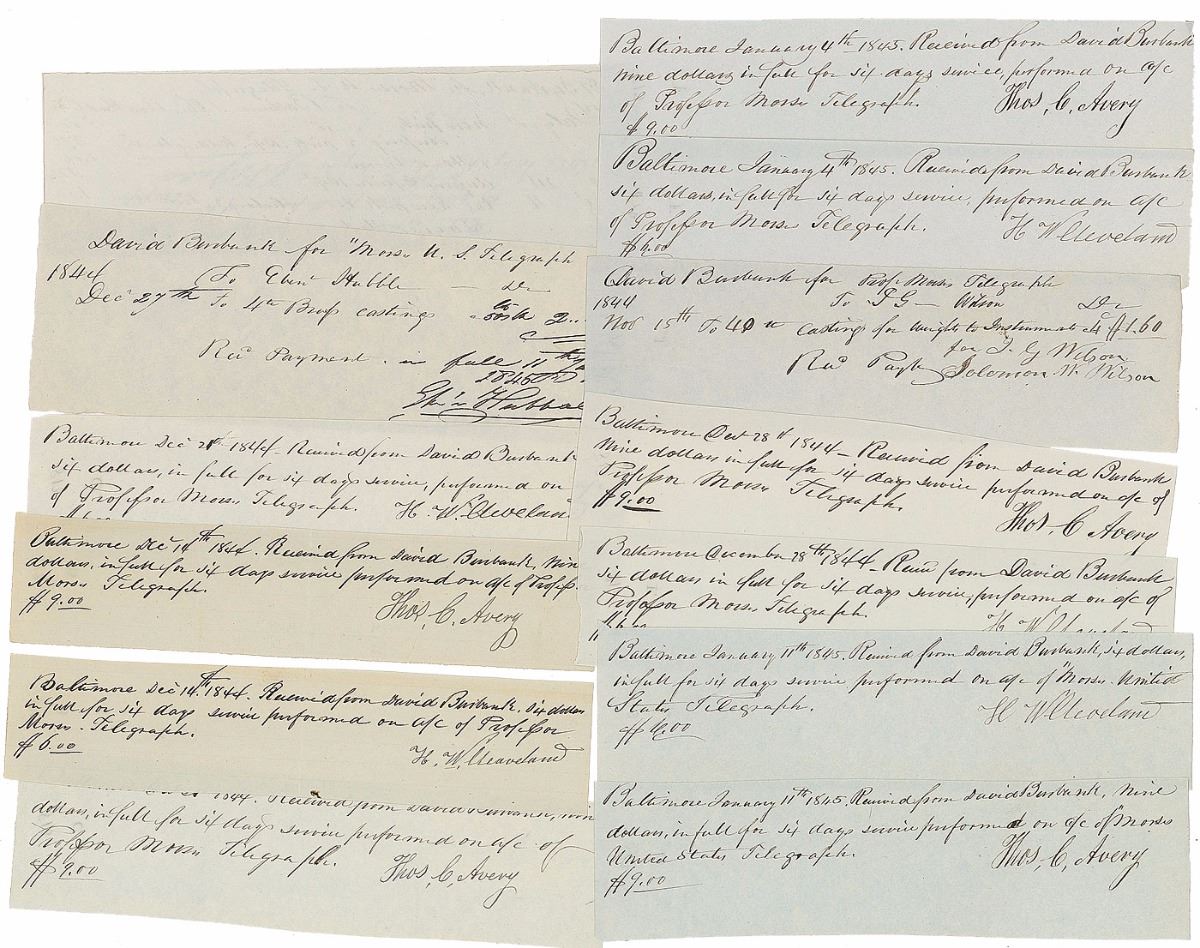 David Burbank for "Morse U. S. Telegraph
1844 To Eben Hubble — Dr
Dec 27th To 4 th Brass castings
Recd Payment in full 11th
1845
Hubbal
Baltimore Dec 21st 1844. Received from David Burbank
six dollars, in full for six days service, performed on
of Professor Morse Telegraph. H. W. Clevelan
Baltimore Dec 14th 1844. Received from David Burbank, Nine
dollars, in full for six days service performed on a/c of Profess.
Morse Telegraph.
$9.00 Thos, C, Avery
Baltimore Dec 14th 1844. Received from David Burbank. Six dollars
in full for six days service performed on a/c of Professor
Morse. Telegraph.
$6.00 H. W. Cleaveland
1844. Received from David Burbank, nine
dollars, in full for six days service performed on a/c of
Professor Morse Telegraph.
$9.00 Thos, C, Avery
Baltimore January 4th 1845. Received from David Burbank
nine dollars, in full for six days service, performed on a/c
of Professor Morse Telegraph. Thos, C, Avery
$9.00
Baltimore January 4th 1845. Received from David Burbank
six dollars, in full for six days service, performed on a/c
of Professor Morse Telegraph. H W Cleveland
$6.00
David Burbank for Prof Morse Telegraph
1844 To J G Wilson Dr
Nov 15th To 40 th castings for weights to Instruments 4 $1.60
for J. G Wilson
Recd Payt Solomon W. Wilson
Baltimore Dec 28th 1844 — Received from David Burbank
Nine dollars in full for six days service performed on a/c of
Professor Morse Telegraph.
$9.00 Thos, C Avery
Baltimore December 28th 1844 — Recd from David Burbank
six dollars, in full for six days, service, performed on a/c of
Professor Morse Telegraph.
H W Cleveland
Baltimore January 11th 1845. Received from David Burbank, six dollars,
in full for six days service performed on a/c of "Morse United
States Telegraph.
$6.00 H W Cleveland
Baltimore January 11th 1845. Received from David Burbank, Nine
dollars, in full for six days service performed on a/c of "Morse
United States Telegraph.
$9.00 Thos, C, Avery